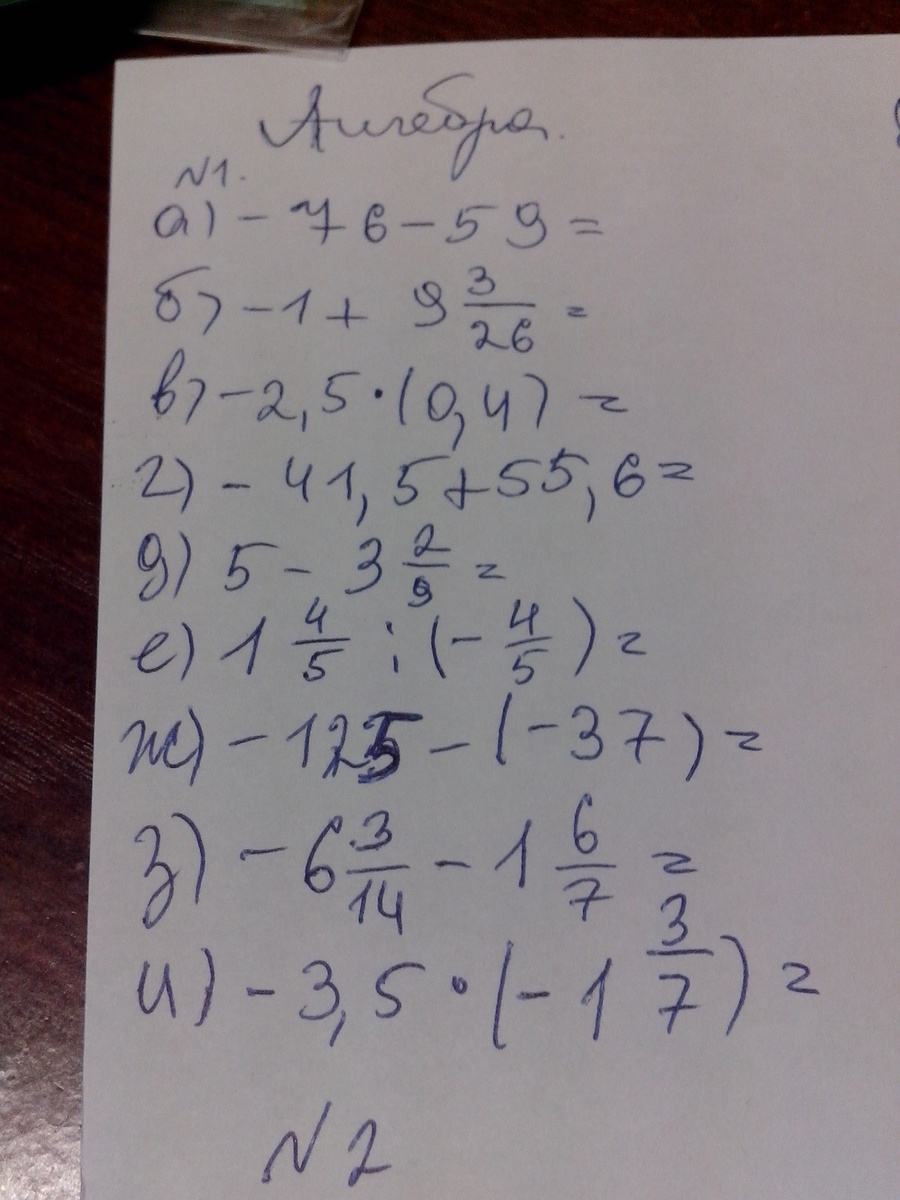 Алгебра.
N1.
а) - 76 - 59 =
б) - 1 + 9 3/26 =
в) - 2,5 · (0,4) =
г) - 41,5 + 55,6 =
д) 5 - 3 2/9 =
е) 1 4/5 : (- 4/5) =
ж) - 125 - (- 37) =
з) - 6 3/14 - 1 6/7 =
и) - 3,5 · (- 1 3/7) =
N2